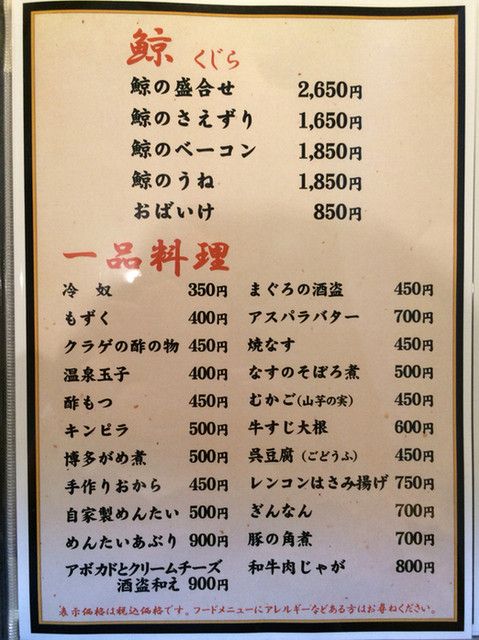 鯨 くじら
鯨の盛合せ 2,650円
鯨のさえずり 1,650円
鯨のベーコン 1,850円
鯨のうね 1,850円
おばいけ 850円
一品料理
冷奴 350円
もずく 400円
クラゲの酢の物 450円
温泉玉子 400円
酢もつ 450円
キンピラ 500円
博多がめ煮 500円
手作りおから 450円
自家製めんたい 500円
めんたいあぶり 900円
アボカドとクリームチーズ
酒盗和え 900円
まぐろの酒盗 450円
アスパラバター 700円
焼なす 450円
なすのそぼろ煮 500円
むかご(山芋の実) 450円
牛すじ大根 600円
呉豆腐(ごどうふ) 450円
レンコンはさみ揚げ 750円
ぎんなん 700円
豚の角煮 700円
和牛肉じゃが 800円
表示価格は税込価格です。フードメニューにアレルギーなどある方はお尋ねください。